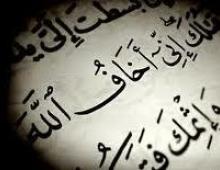 بَسَطتَ إِلَىَّ
إِنِّىٓ أَخَافُ ٱللَّهَ
وَإِثْمِكَ